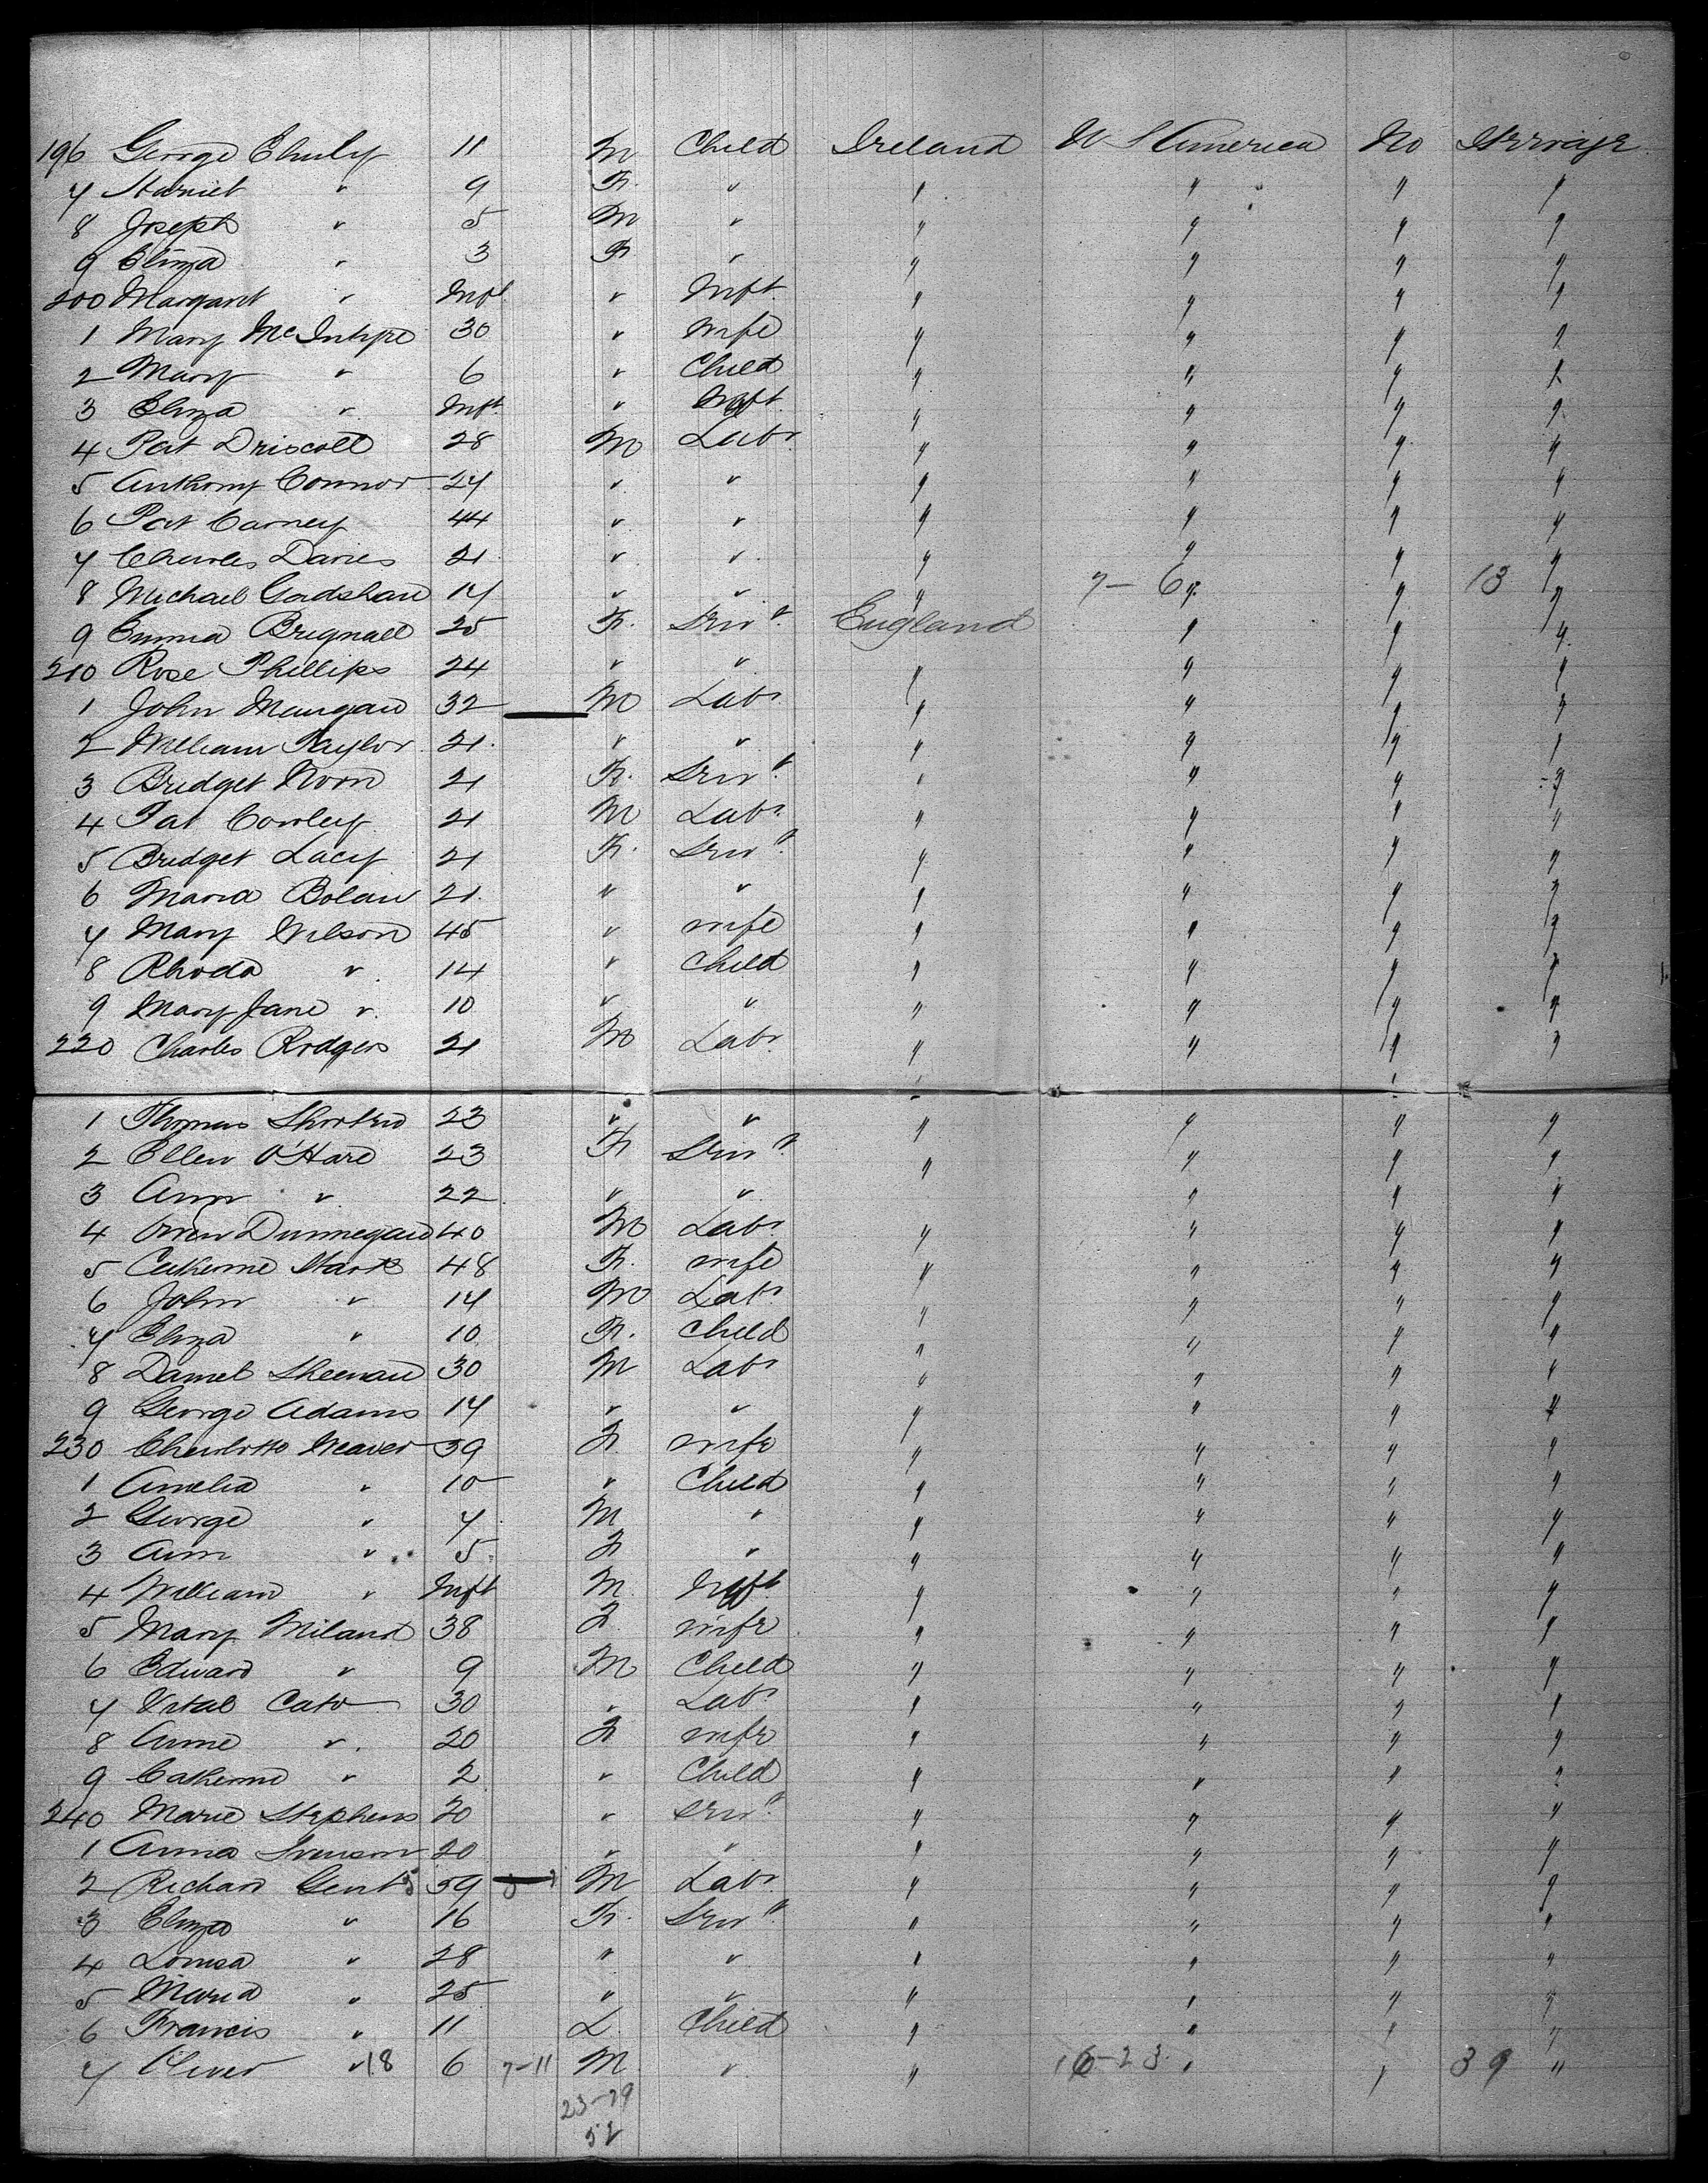 196 George Ehuly 11 M Child Ireland U S America No Steerage
7 Harriet " 9 F. " " " " "
8 Joseph " 5 M " " " " "
9 Eliza " 3 F " " " " "
200 Margaret " Inft " Inft. " " " "
1 Mary McIntyre 30 " wife " " " "
2 Mary " 6 " Child " " " "
3 Eliza " Inft " Inft. " " " "
4 Pat Driscoll 28 M Labr " " " "
5 Anthony Connor 24 " " " " " "
6 Pat Carney 44 " " " " " "
7 Charles Davies 21 " " " " " "
8 Michael 17 " " " 7-6 " " 13 "
9 Emma Brignall 25 F. Srvt England " " "
210 Rose Phillips 24 " " " " " "
1 John Mangan 32 M Labr " " " "
2 William Taylor 21. " " " " " "
3 Bridget Noon 21 F. Srvt " " " "
4 Pat Conley 21 M Labr " " " "
5 Bridget Lacy 21 F. Srvt " " " "
6 Maria Bolan 21. " " " " " "
7 Mary Wilson 45 " wife " " " "
8 Rhoda " 14 " Child " " " "
9 Mary Jane " 10 " " " " " "
220 Charles Rodgers 21 M Labr " " " "
1 Thomas 23 " " " " " "
2 Ellen O'Hare 23 F Srvt " " " "
3 Ann " 22 " " " " "
4 Owen Dunnegan 40 M Labr " " " "
5 Catherine Stark 48 F. wife " " " "
6 John " 17 M Labr " " " "
7 Eliza " 10 F. Child " " " "
8 Daniel Sheenan 30 M Labr " " " "
9 George Adams 17 " " " " " "
230 Charlotte Weaver 39 F. wife " " " "
1 Amelia " 10 " Child " " " "
2 George " 7 M " " " " "
3 Ann " 5 F " " " " "
4 William " Inft M. Inft " " " "
5 Mary Miland 38 F. wife " " " "
6 Edward " 9 M Child " " " "
7 Vital Cato 30 " Labr " " " "
8 Anne " 20 F wife " " " "
9 Catherine " 2 " Child " " " "
240 Marie Stephens 20 " Srvt " " " "
1 Anna Svenson 20 " " " " " "
2 Richard Gent 59 M Labr " " " "
3 Eliza " 16 F. Srvt " " " "
4 Louisa " 28 " " " " " "
5 Maria " 25 " " " " " "
6 Francis " 11 Child " " " "
7 Oliver " 18 6 7-11 M " " 16-23 " " 39 "
23-29
52